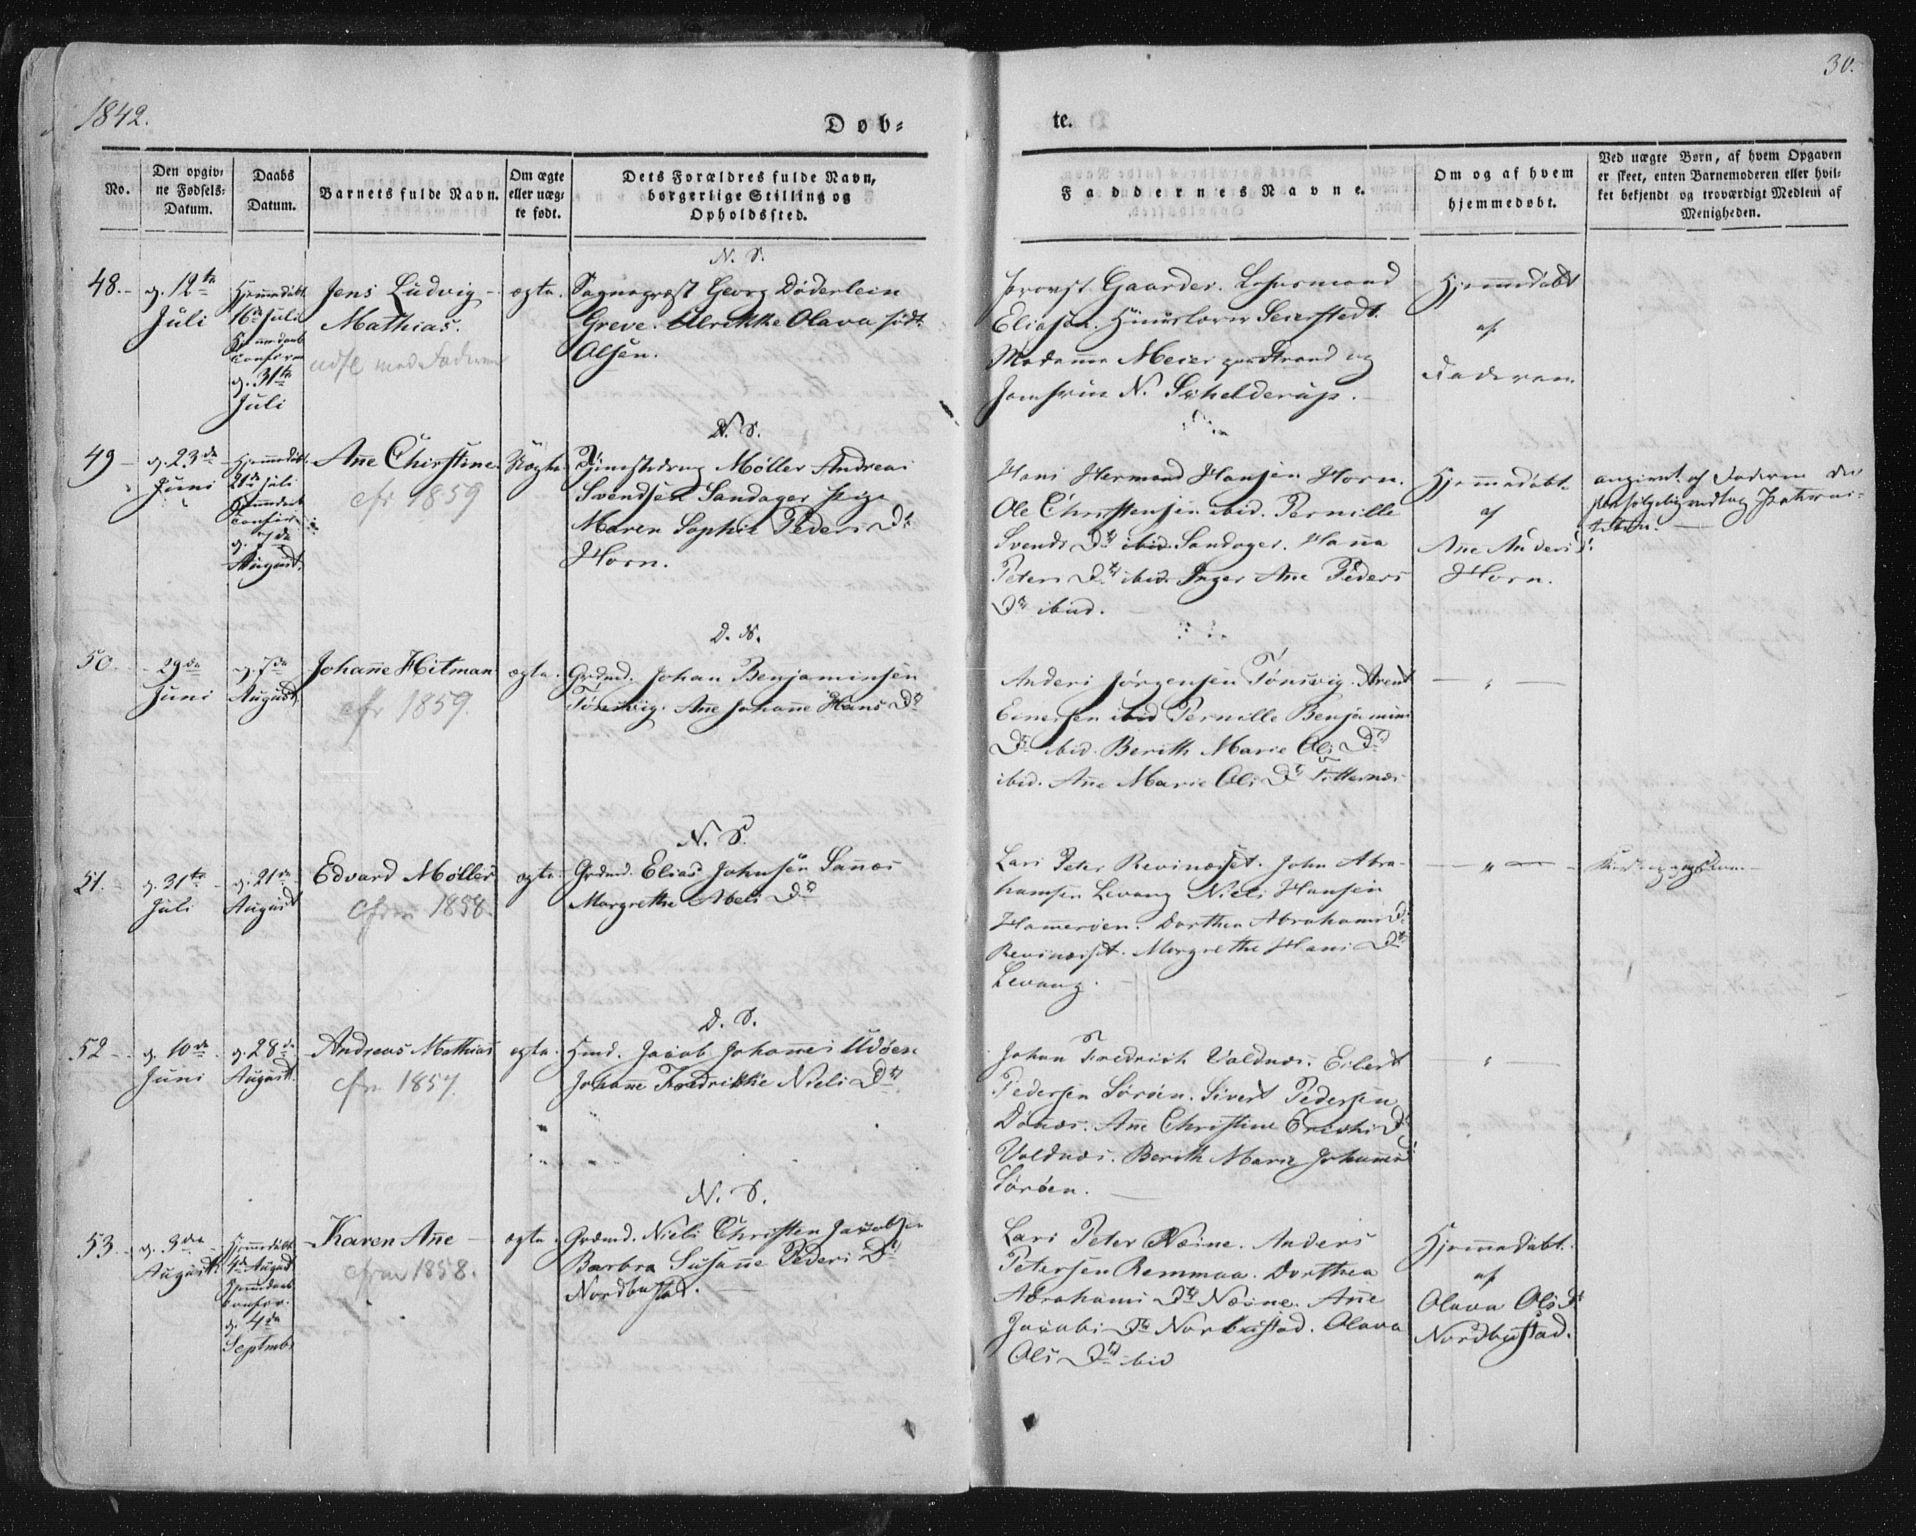 1842.
Døb-
te.
30.
No.
Den opgiv-
ne Fødsels-
Datum.
Daabs
Datum.
Barnets fulde Navn.
Om ægte
eller uæg-
te født.
Dets Forældres fulde Navn,
borgerlige Stilling og
Opholdssted.
Faddernes Navne.
Om og af hvem
hjemmedøbt.
Ved uægte Børn, af hvem Opgaven
er skeet, enten Barnemoderen eller hvil-
ket bekjendt og troværdigt Medlem af
Menigheden.
N. S.
48.
d. 12te
Juli
Hjemmedøbt
16de Juli
Hjemmedaab
confirm
d. 31te
Juli
Jens Ludvig
Mathias.
udfl med Faderen
ægte.
Sognepræst Georg Døderlein
Greve. Ulrikke Olava født
Olsen.
Provst Gaarder. Lehnsmand
Eliasen. Seierstedt.
Madame Meier Strand og
Jomfrue N. Schelderup.
Hjemmedøbt
af
Faderen.
N. S.
49
d. 23de
Juni
Hjemmedøbt
21de Juli
Hjemmedaab
confir-
d. 7de
August.
Ane Christine
cfr 1859
Uægte
Tjenestedreng Møller Andreas
Svendsen Sandager Pige
Maren Sophie Peders Dr
Horn.
Hans Hermand Hansen Horn.
Ole Christensen ibid. Pernille
Svends Dr ibid Sandager. Hanna
Peters Dr ibid. Inger Ane Peders
Dr ibid.
Hjemmedøbt
af
Ane Anders Dr
Horn.
angivet af Faderen der
Paterni-
teten.
D. N.
50.
29de
Juni
d. 7de
August
Johanne Hitman
cfr 1859.
ægte.
Grdmd. Johan Benjaminsen
Tønsvig. Ane Johanne Hans Dr
Anders Jørgensen Tønsvig. Arent
Einersen ibid Pernille Benjamins
Dr ibid. Berith Marie Ols Dr
ibid. Ane Marie Ols Dr
— " —
N. S.
51.
d. 31te
Juli
d. 21de
August
Edvard Møller
cfrm 1858.
ægte
Grdmd. Elias Johnsen Sannes
Margrethe Abels Dr
Lars Peter Revinæsset. John Abra-
hamsen Levang Niels Hansen
Hammerøen. Dorthea Abrahams Dr
Revinæsset. Margrethe Hans Dr
Levang.
— " —
D. S.
52
d. 10de
Juni
d. 28de
August.
Andreas Mathias
cfr 1857.
ægte.
Hmd. Jacob Johannes Udøen
Johanne Fredrikke Niels Dr
Johan Fredrich Valdnæs. Eilert
Pedersen Sørøen. Sivert Pedersen
Dønæs. Ane Christine Erichs Dr
Valdnæs. Berith Marie Johannes
Sørøen.
— " —
N. S.
53
d. 3de
August.
Hjemmedøbt
4de August
Hjemmedaab
confir.
d. 4de
Septmb
Karen Ane
cfrm 1858.
ægte.
Grdmd. Niels Christen Jacobsen
Barbra Susanne Peders Dr
Nordbustad.
Lars Peter Næsne. Anders
Petersen Remmaa. Dorthea
Abrahams Dr Næsne. Ane
Jacobs Dr Norbustad. Olava
Ols Dr ibid
Hjemmedøbt.
af
Olava Ols Dr
Nordbustad.